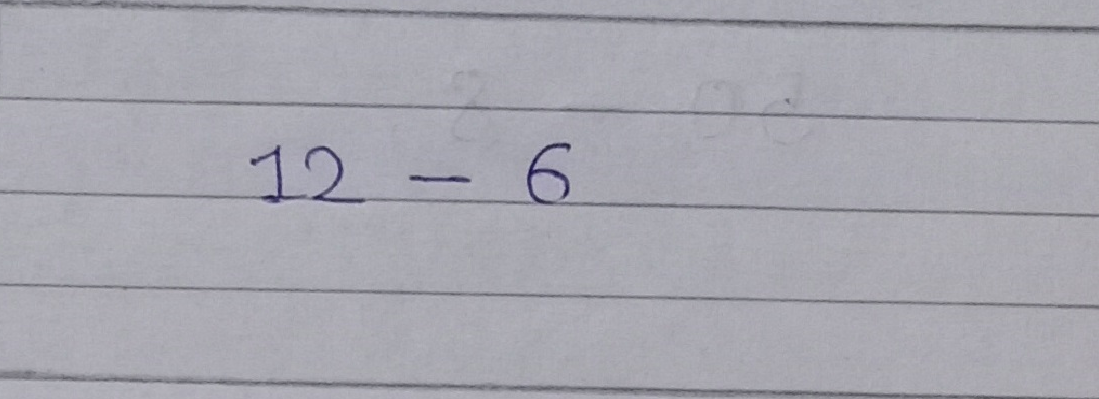 12 - 6